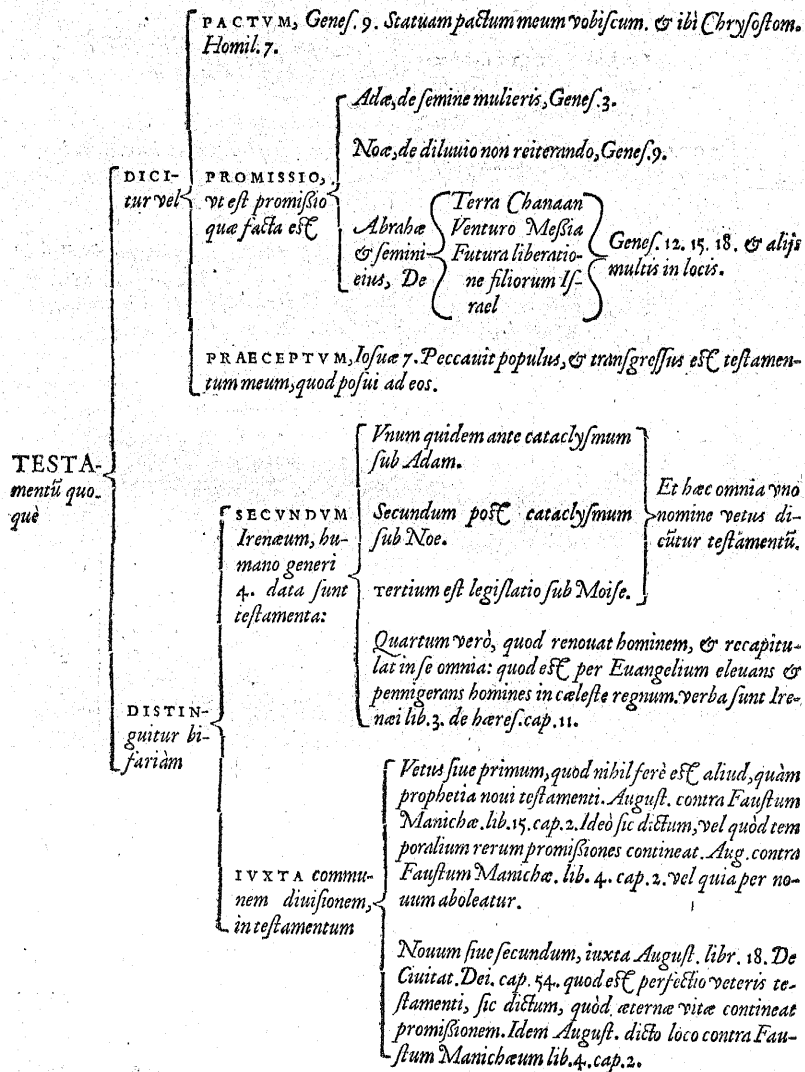 PACTVM, Geneſ. 9. Statuam pactum meum vobiſcum. & ibi Chryſoſtom.
Homil. 7.
Adæ, de ſemine mulieris, Geneſ. 3.
Noæ, de diluuio non reiterando, Geneſ. 9.
DICI-
tur vel
PROMISSIO,
vt eſt promißio
quæ facta eſt
Abrahæ
& ſemini
eius, De
Terra Chanaan
Venturo Meßia
Futura liberatio-
ne filiorum Iſ-
rael
Geneſ. 12. 15. 18. & alijs
multis in locis.
PRAECEPTVM, Ioſuæ 7. Peccauit populus, & tranſgreſſus eſt teſtamen-
tum meum, quod poſui ad eos.
TESTA-
mentū quo-
què
SECVNDVM
Irenæum, hu-
mano generi
4. data ſunt
teſtamenta:
Vnum quidem ante cataclyſmum
ſub Adam.
Secundum poſt cataclyſmum
ſub Noe.
Tertium eſt legiſlatio ſub Moiſe.
Et hæc omnia vno
nomine vetus di-
cūtur teſtamentū.
Quartum verò, quod renouat hominem, & recapitu-
lat in ſe omnia: quod eſt per Euangelium eleuans &
pennigerans homines in cæleſte regnum. verba ſunt Ire-
næi lib. 3. de hæreſ. cap. 11.
DISTIN-
guitur bi-
fariàm
IVXTA commu-
nem diuiſionem,
in teſtamentum
Vetus ſiue primum, quod nihil ferè eſt aliud, quàm
prophetia noui teſtamenti. Auguſt. contra Fauſtum
Manichæ. lib. 15. cap. 2. Ideò ſic dictum, vel quòd tem
poralium rerum promißiones contineat. Aug. contra
Fauſtum Manichæ. lib. 4. cap. 2. vel quia per no-
uum aboleatur.
Nouum ſiue ſecundum, iuxta Auguſt. libr. 18. De
Ciuitat. Dei. cap. 54. quod eſt perfectio veteris te-
ſtamenti, ſic dictum, quòd æternæ vitæ contineat
promißionem. Idem Auguſt. dicto loco contra Fau-
ſtum Manichæum lib. 4. cap. 2.